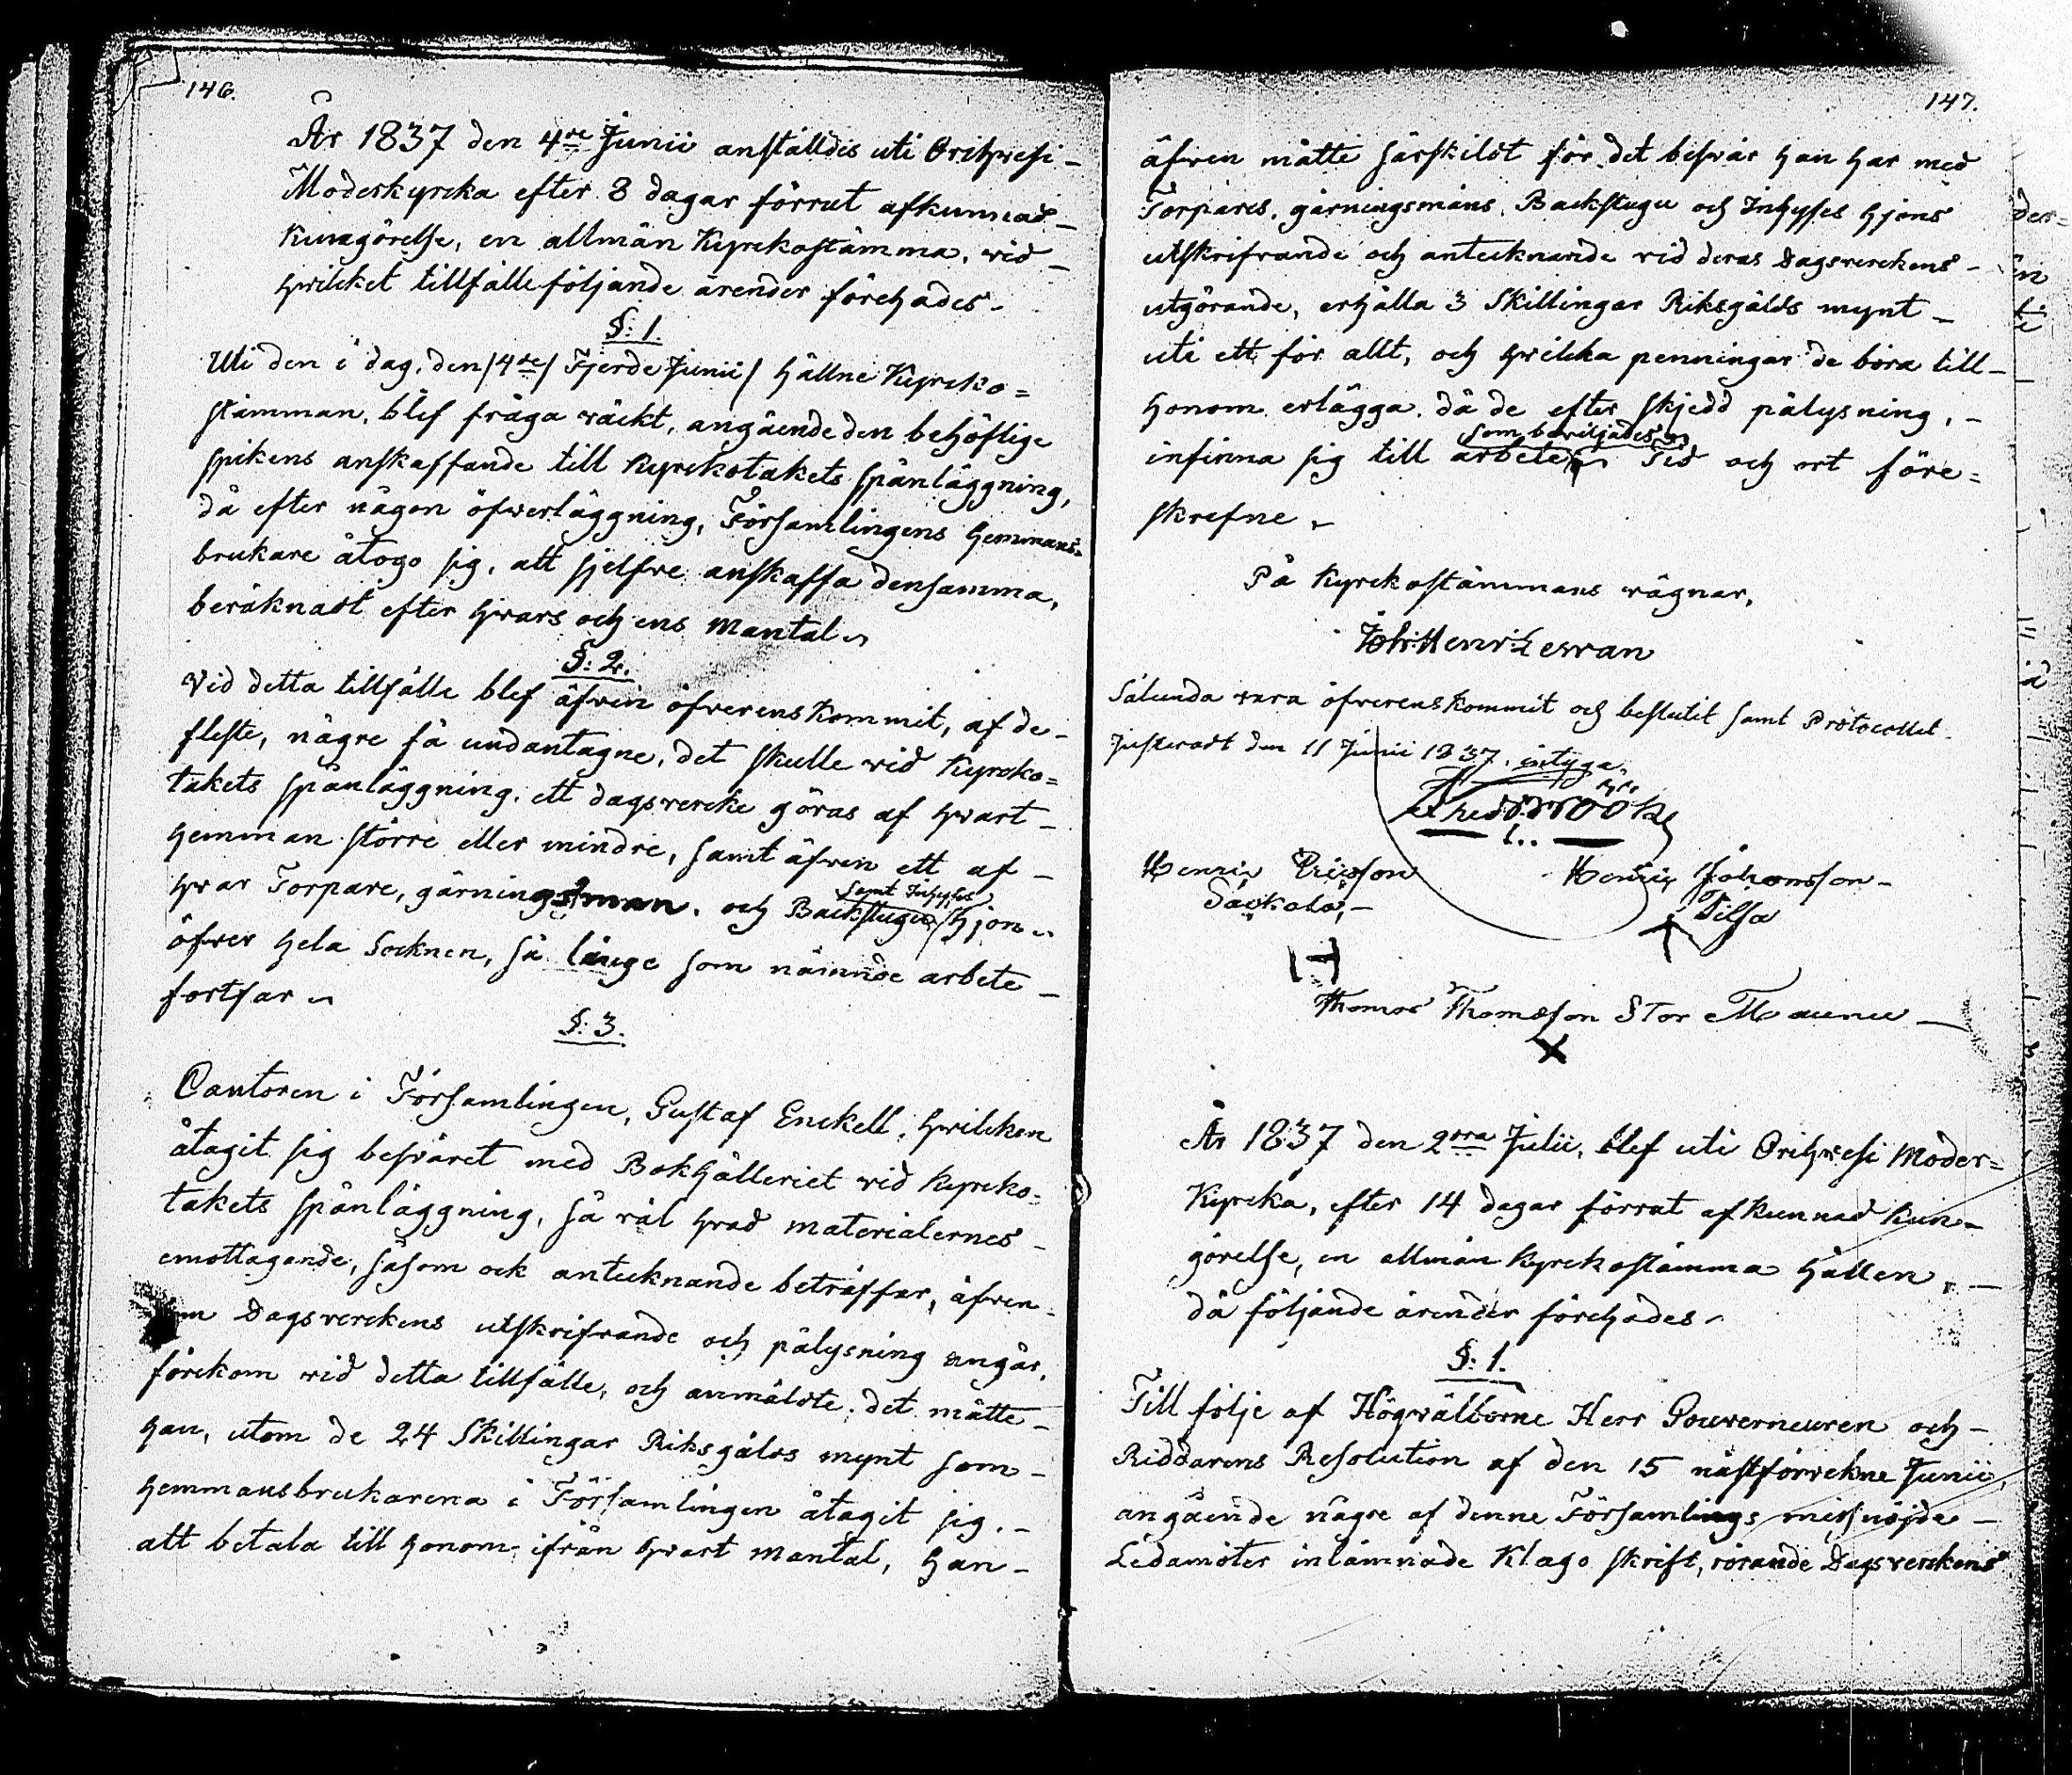 146.
År 1837 den 4de Junii anställdes uti Orihvesi
Moderkyrcka efter 8 dagar förrut afkunnad
Kungörelse, en allmän Kyrckostämma, vid
hvilcket tillfälle följande ärender förehades.
§: 1.
Uti den i dag, den /4de/ Fjerde Junii / hållne Kyrcko=
stämman, blef fråga väckt, angående den behöflige
spikens anskaffande till Kyrckotakets spånläggning,
då efter någon öfverläggning, Församlingens Hemmans=
brukare åtogo sig, att sjelfve anskaffa densamma,
beräknadt efter hvars och ens mantal
§: 2.
Vid detta tillfälle blef äfven öfverenskommit, af de
fleste, någre få undantagne, det skulle vid Kyrcko=
takets spånläggning, ett dagsvercke göras af hvart
Hemman större eller mindre, samt äfven ett af
hvar Torpare, gärningsman, och Backstugu samt Inhyses Hjon
öfver hela Socknen, så länge som nämnde arbete
fortfar
§: 3.
Cantoren i Församlingen, Gustaf Enckell, hvilcken
åtagit sig besväret med Bokhålleriet vid Kyrcko=
takets spånläggning, så väl hvad materialernes
emottagande, såsom ock antecknande beträffar, äfven
som Dagsverckens utskrifvande och pålysning angår,
förekom vid detta tillfälle, och anmälde, det måtte
han, utom de 24 Skillingar Riksgälds mynt som
Hemmansbrukarena i Församlingen åtagit sig,
att betala till honom ifrån hvart mantal, han
147.
äfven måtte särskildt för det besvär han har med
Torpares, gärningsmäns, Backstugu och Inhyses Hjons
utskrifvande och antecknande vid deras Dagsverckens
utgörande, erhålla 3 Skillingar Riksgälds mynt
uti ett för allt, och hvilcka penningar de böra till
honom erlägga, då de efter skjedd pålysning,
som beviljades
infinna sig till arbete Tid och ort före=
skrefne
På Kyrckostämmans vägnar,
Joh: Henr: Lewan
Sålunda vara öfverenskommit och beslutit samt Protocollet
Justeradt den 11 Junii 1837, intyga
Henric Ericsson
Henric Johansson
Säckala,
Pilsa
Thomas Thomasson Stor Maunu
År 1837 den 2dra Julii, blef uti Orihvesi Moder=
Kyrcka, efter 14 dagar förrut afkunnad kun=
görelse, en allmän Kyrckostämma hållen,
då följande ärender förehades
§: 1.
Till följe af Högvälborne Herr Gouverneuren och
Riddarens Resolution af den 15 nästförvekne Junii,
angående någre af denne Församlings missnöjde
Ledamöter inlämnade Klago skrift, rörande Dagsverckens